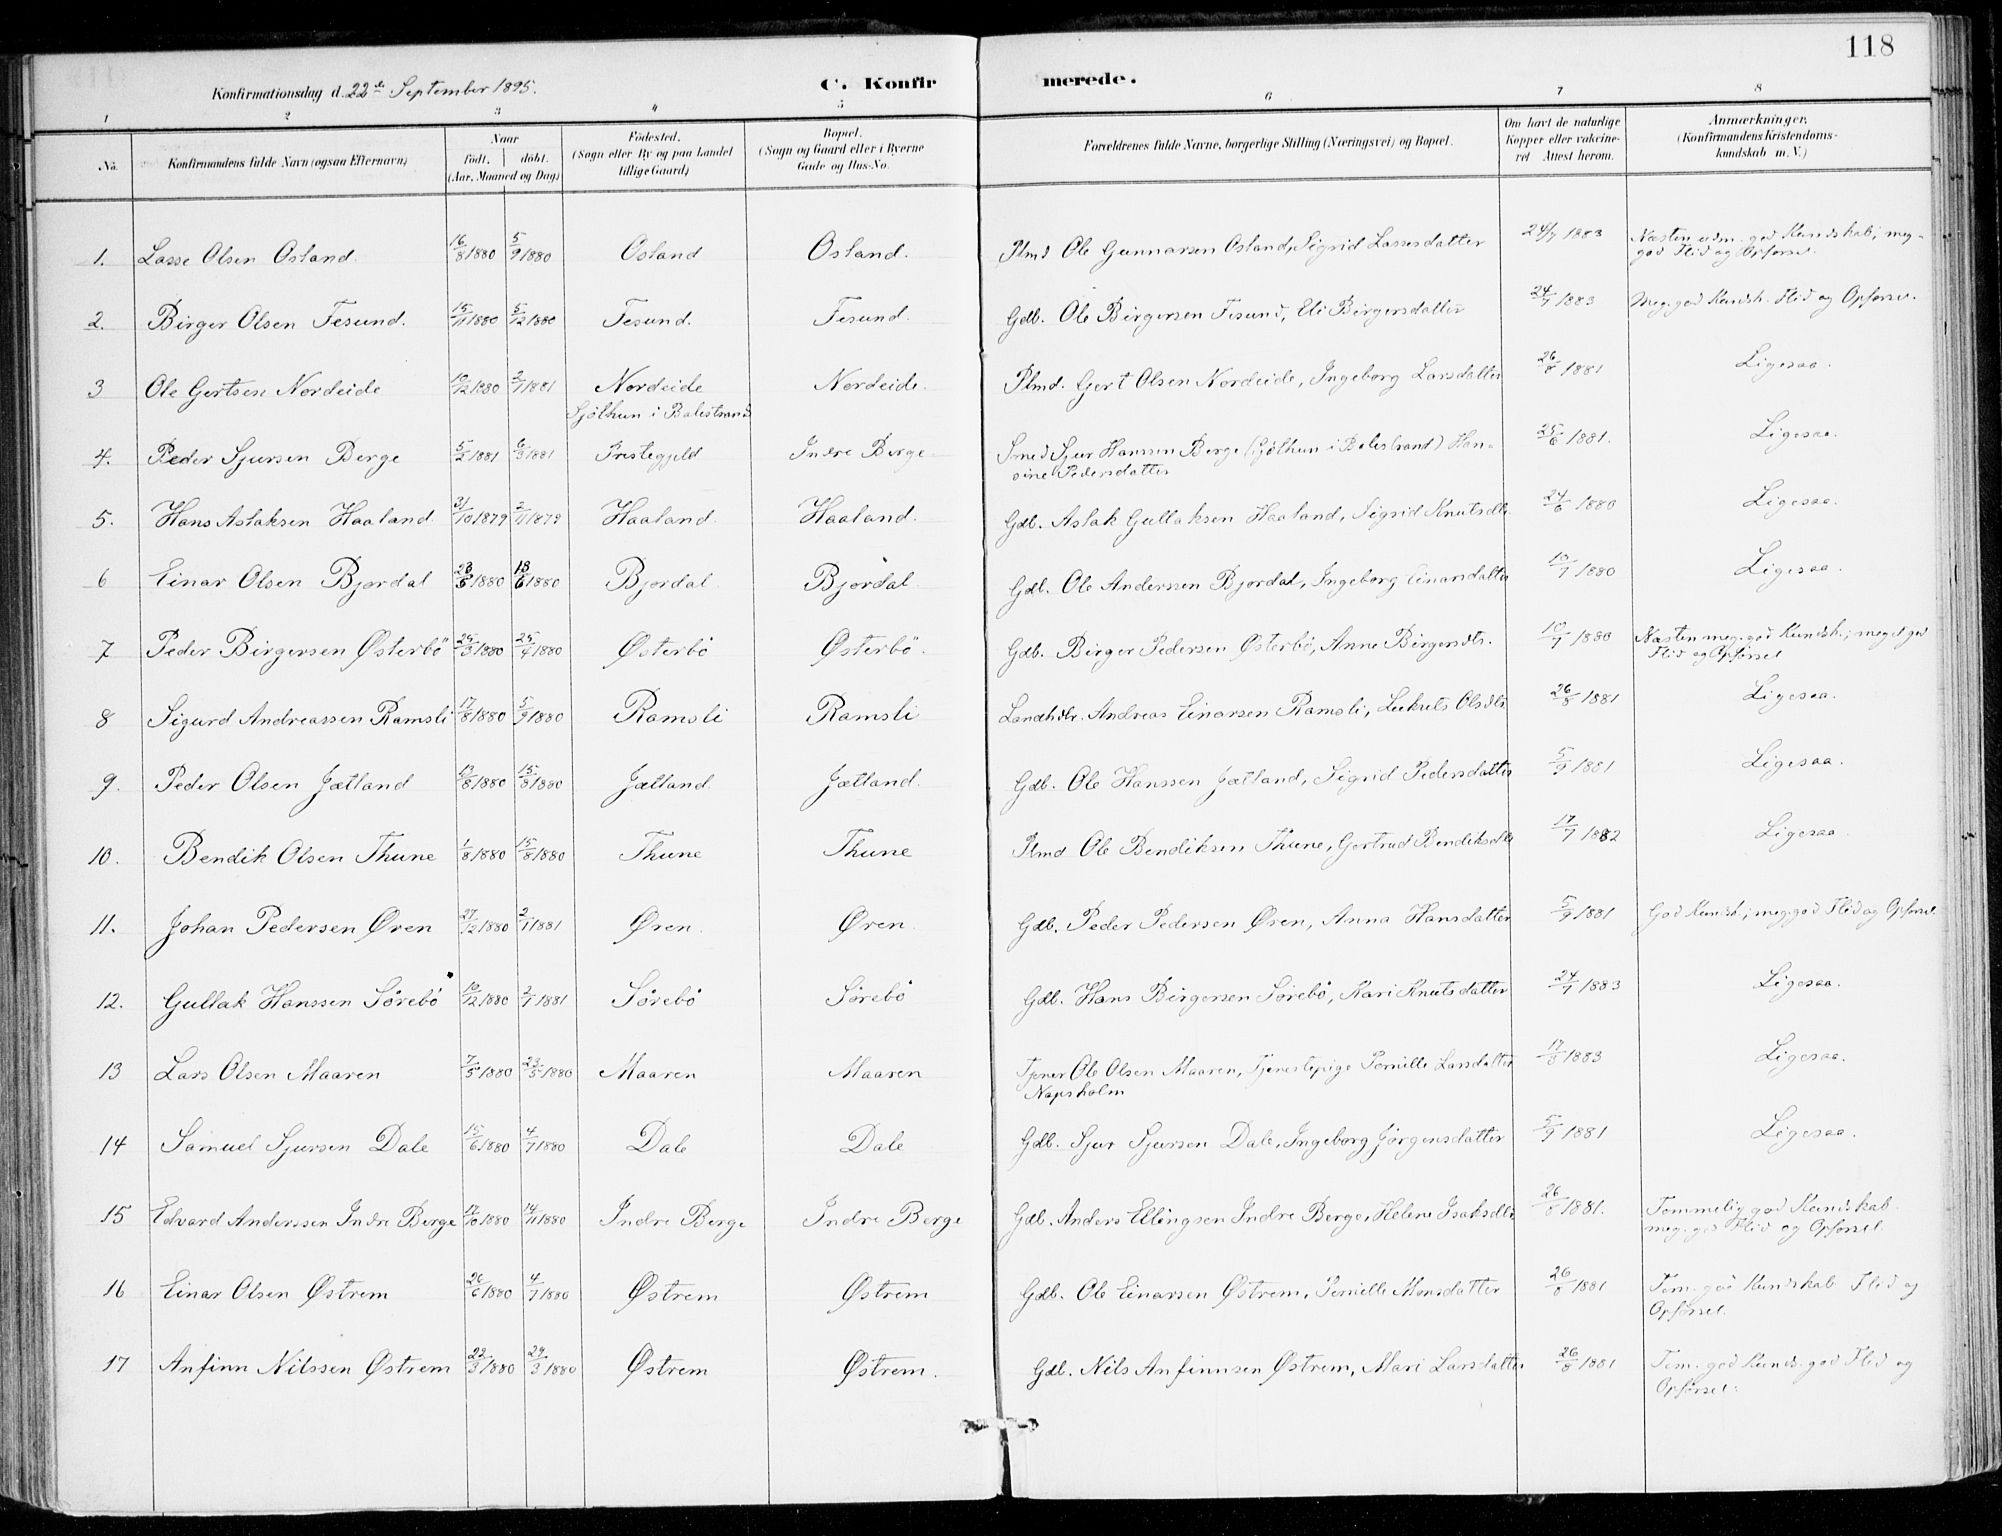 118
Konfirmationsdag d. 22de September 1895.
C. Konfirmerede.
1 2 3 4 5 6 7 8
No. Konfirmandens fulde Navn (ogsaa Efternavn) Naar født, døbt. (Aar, Maaned og Dag) Fødested. (Sogn eller By og paa Landet tillige Gaard) Bopæl. (Sogn og Gaard eller i Byerne Gade og Hus-No. Forældrenes fulde Navne, borgerlige Stilling (Næringsvei) og Bopæl. Om havt de naturlige Kopper eller vakcineret Attest herom. Anmærkninger. (Konfirmandens Kristendomskundskab m. V.)
1. Lasse Olsen Osland. 16/8 1880 5/9 1880 Osland Osland. Plmd Ole Gunnarsen Osland, Sigrid Lassesdatter 24/7 1883 Næsten udm. god Kundskab; meg. god Flid og Opførsel.
2. Birger Olsen Tesund. 15/11 1880 5/12 1880 Tesund. Tesund. Gdb. Ole Birgersen Tesund, Eli Birgersdatter 24/7 1883 Meg. god Kundsk. Flid og Opførsel.
3 Ole Gertsen Nordeide 10/12 1880 2/1 1881 Nordeide Nordeide. Plmd. Gert Olsen Nordeide, Ingeborg Larsdatter 26/8 1881 Ligesaa.
4. Peder Sjursen Berge 5/2 1881 6/3 1881 Sjøthun i Balestrand Prestegjeld Indre Berge Smed Sjur Hanssen Berge (Sjøthun i Balestrand) Hansine Pedersdatter 25/6 1881. Ligesaa.
5. Hans Aslaksen Haaland. 31/10 1879 2/11 1879 Haaland. Haaland. Gdb. Aslak Gullaksen Haaland, Sigrid Knutsdtr. 24/6 1880 Ligesaa.
6 Einar Olsen Bjordal 28/5 1880 13/6 1880 Bjordal. Bjordal. Gdb. Ole Anderssen Bjordal, Ingeborg Einarsdatter 10/7 1880 Ligesaa.
7 Peder Birgersen Østerbø 25/3 1880 25/4 1880 Østerbø Østerbø. Gdb. Birger Pedersen Østerbø, Anne Birgersdtr. 10/7 1880 Næsten meg. god Kundsk.; meget god Flid og Opførsel
8 Sigurd Andreassen Ramsli 17/8 1880 5/9 1880 Ramsli Ramsli Andreas Einarsen Ramsli, Olsdtr. 26/8 1881 Ligesaa.
9. Peder Olsen Jætland /8 1880 15/8 1880 Jætland Jætland. Gdb. Ole Hanssen Jætland, Sigrid Pedersdatter 5/9 1881 Ligesaa.
10. Bendik Olsen Thune 1/8 1880 15/8 1880 Thune Thune Plmd Ole Bendiksen Thune, Gertrud Bendiksdtr 17/7 1882 Ligesaa.
11. Johan Pedersen Øren 27/12 1880 2/1 1881 Øren. Øren. Gdb. Peder Pedersen Øren, Anna Hansdatter 5/9 1881 God Kundsk.; meg. god Flid og Opførsel.
12. Gullak Hanssen Sørebø 10/12 1880 2/1 1881 Sørebø Sørebø Gdb. Hans Birgersen Sørebø, Kari Knutsdatter 24/7 1883 Ligesaa.
13 Lars Olsen Maaren 7/5 1880 23/5 1880 Maaren Maaren Tjener Ole Olsen Maaren, Tjenestepige Pernille Larsdatter Napsholm 17/8 1883 Ligesaa.
14 Samuel Sjursen Dale 15/6 1880 4/7 1880 Dale Dale Gdb. Sjur Sjursen Dale, Ingeborg Jørgensdatter 5/9 1881 Ligesaa.
15 Edvard Anderssen Indre Berge 17/10 1880 14/11 1880 Indre Berge Indre Berge Gdb. Anders Ellingsen Indre Berge, Helene Isaksdtr 26/8 1881. Temmelig god Kundskab. meg. god Flid og Opførsel.
16 Einar Olsen Østrem 26/6 1880 4/7 1880 Østrem Østrem Gdb. Ole Einarsen Østrem, Pernille Monsdatter 26/8 1881 Tem. god Kundskab Flid og Opførsel.
17 Anfinn Nilssen Østrem 22/3 1880 29/3 1880 Østrem Østrem. Gdb. Nils Anfinnsen Østrem, Mari Larsdatter 26/8 1881 Tem. god Kunds. god Flid og Opførsel.